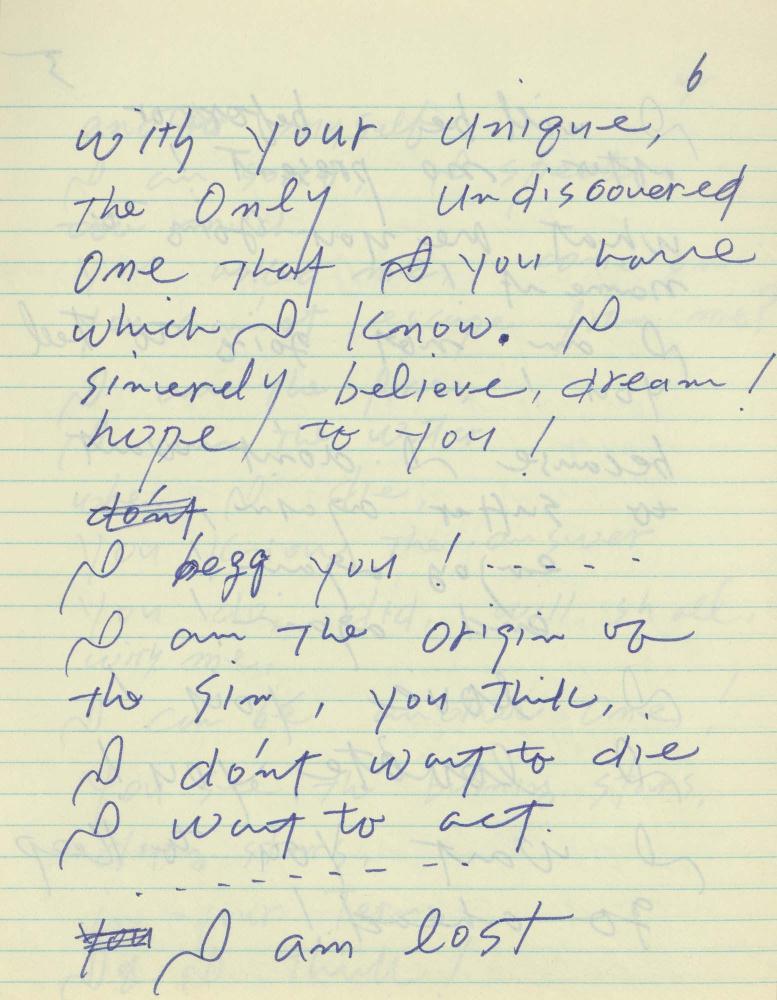 6
with your unique,
The Only undiscovered
One That I you have
which I know. I
sincerely believe, dream!
hope / to you!
do'nt
I begg you! -----
I am The origin of
the Sin, you Think,
I do'nt want to die
I want to act.
- - - - - - - - -
you I am lost